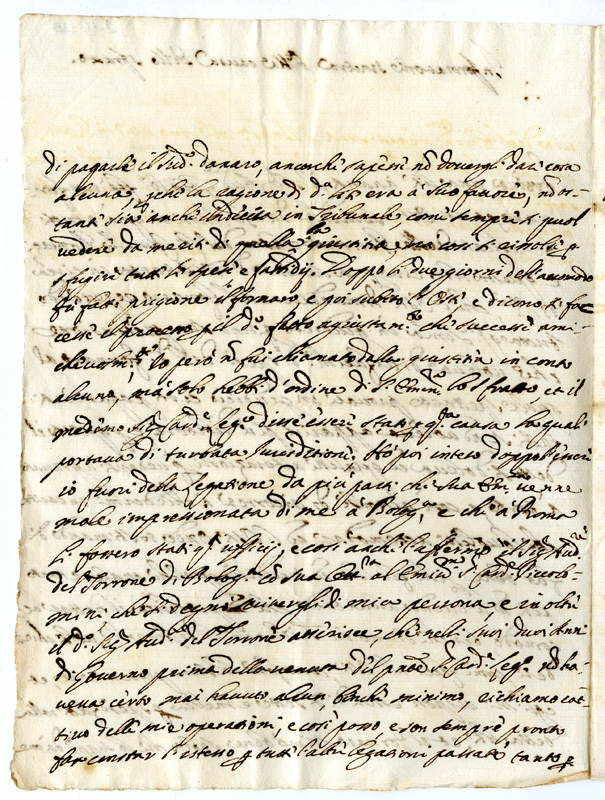 di pagarli il sud.º danaro, ancorche sapessi nō dovergli dar cosa
alcuna, perche la ragione di d.ª lite era à suo favore, nō os-
tante sia anche indecisa in Tribunale, come sempre si puol
vedere da meriti di quella giustitia, mà così si risolse p
sfugire tutte le spese e fastidij. Doppo li due giorni dell'accomodo
fù fatto prigione il fornaro, e poi subito l'Oste e dicono si fa-
cesse il processo p il d.º fatto agiustam.to che successe ami-
chevolm.te Io però ñ fui chiamato dalla giustitia in conto
alcuno, mà solo hebbi d'ordine di S. Emin.za lo sfratto, et il
medemo Sig. Card.e Leg.º disse essere stato p q.sta causa la quale
portava di turbata Iurisditione. Hò poi inteso doppo l'essere
io fuori della Legatione da più parti che Sua Em.za venne
male impressionata di me à Bolog.a, e che à Roma
li fossero stati q.ti ufficij, e così anche l'afferma il Sig. Aud.re
del Torrone di Bolog.a cō sua al Emin.mo S. Card. Piccolo-
mini, che si degni scrivergli di mia persona, e in oltre
il d.º Sig. Aud.re del Torrone asserisce, che nelli suoi duoi Anni
di Governo prima della venuta del pñte S. Card. Leg.º nō ha-
veva certo mai havuto alcun, benche minimo, richiamo cat-
tivo delle mie operationi, e così posso, e son sempre pronto
far constar l'istesso p tutte l'altre legationi passate tanto p